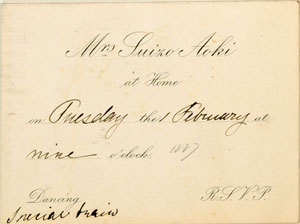 Mrs Suizo Aoki
at Home
on Tuesday the 1 February at
nine o'clock. 1887
Dancing. R.S.V.P.
Special train